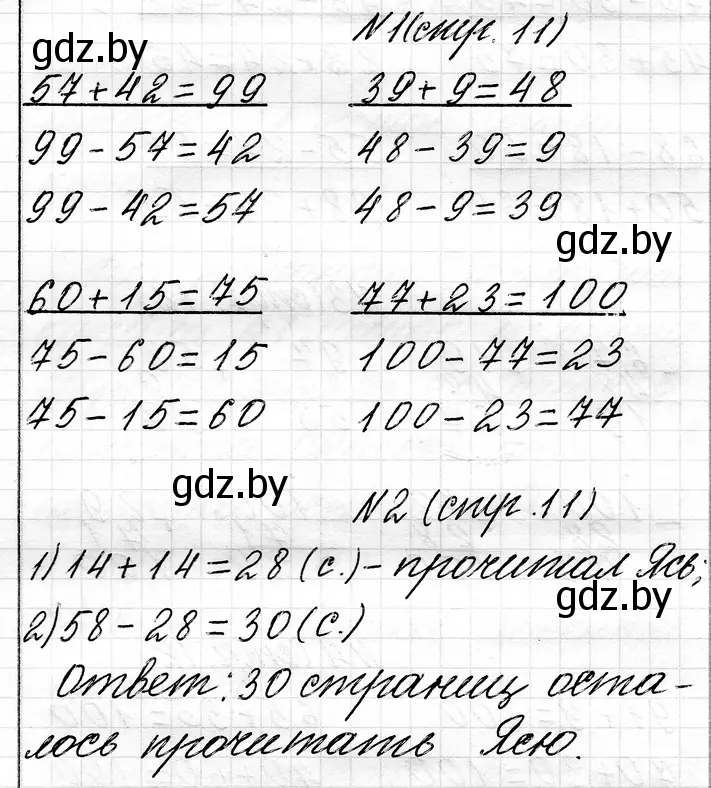 №1 (стр. 11)
gdz.by
57+42=99 39+9=48
99-57=42 48-39=9
99-42=57 48-9=39
gdz.by
60+15=75 77+23=100
75-60=15 100-77=23
75-15=60 100-23=77
gdz.by
№2 (стр. 11)
1) 14+14=28 (с.) - прочитал Ясь;
gdz.by
2) 58-28=30 (с.)
Ответ: 30 страниц оста-
лось прочитать Ясю.